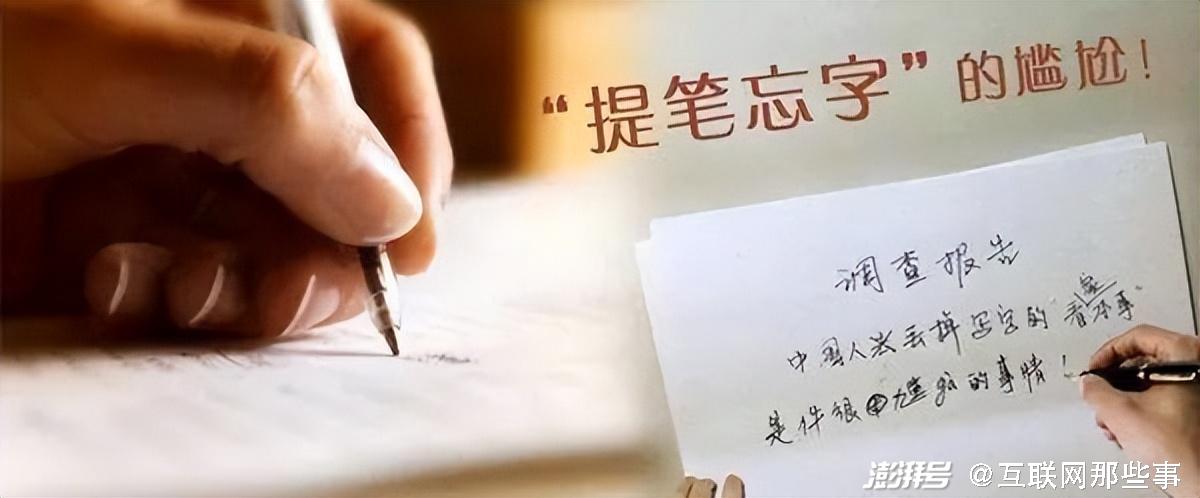 “提笔忘字”的尴尬！
调查报告
中国人丢掉写字的“看家本事”
是件很尴尬的事情！
澎湃号 @互联网那些事